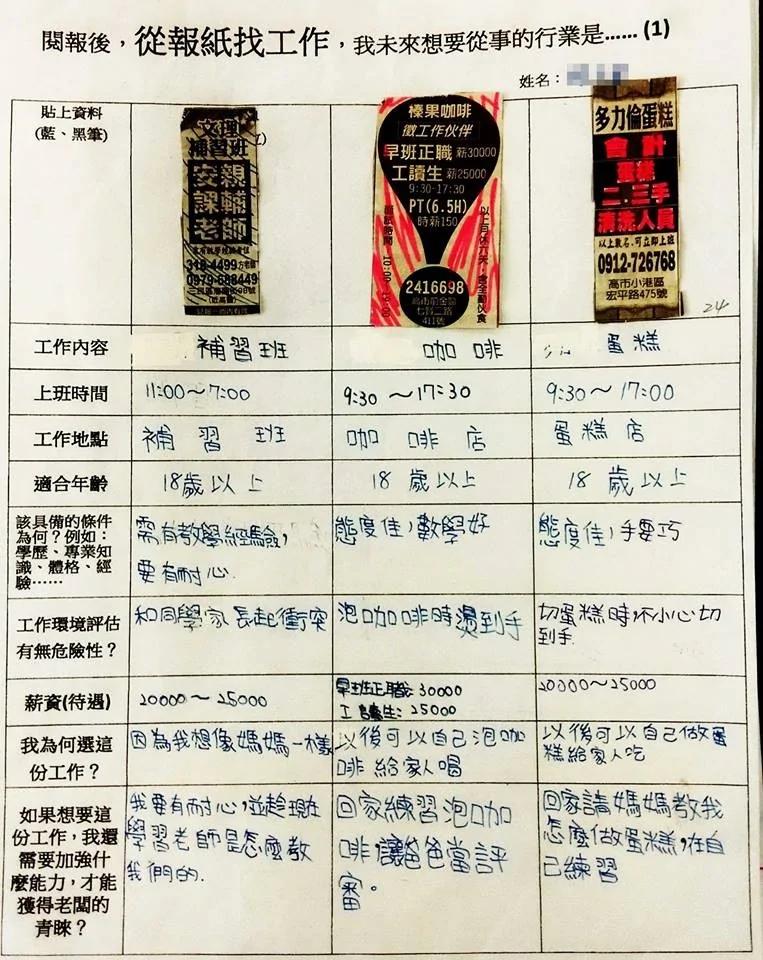 閱報後，從報紙找工作，我未來想要從事的行業是…… (1)
姓名：
貼上資料
(藍、黑筆)
文理
補習班
安親
課輔
老師
318-4499
0979-688449
榛果咖啡
徵工作伙伴
早班正職 薪30000
工讀生 薪25000
9:30-17:30
PT(6.5H)
時薪150
以上月休六天，含全勤伙食
2416698
高市前金區
七賢二路
411號
多力倫蛋糕
會計
蛋糕
二.三手
清洗人員
以上數名，可立即上班
0912-726768
高市小港區
宏平路475號
24
工作內容 補習班 咖啡 蛋糕
上班時間 11:00～7:00 9:30～17:30 9:30～17:00
工作地點 補習班 咖啡店 蛋糕店
適合年齡 18歲以上 18歲以上 18歲以上
該具備的條件
為何？例如：
學歷、專業知
識、體格、經
驗……
需有教學經驗，
要有耐心.
態度佳，數學好
態度佳，手要巧
工作環境評估
有無危險性？
和同學家長起衝突
泡咖啡時燙到手
切蛋糕時，不小心切
到手.
薪資(待遇)
20000～25000
早班正職：30000
工讀生：25000
20000～25000
我為何選這
份工作？
因為我想像媽媽一樣
以後可以自己泡咖
啡給家人喝
以後可以自己做蛋
糕給家人吃
如果想要這
份工作，我還
需要加強什
麼能力，才能
獲得老闆的
青睞？
我要有耐心，並趁現在
學習老師是怎麼教
我們的.
回家練習泡咖
啡，讓爸爸當評
審。
回家請媽媽教我
怎麼做蛋糕，在自
己練習